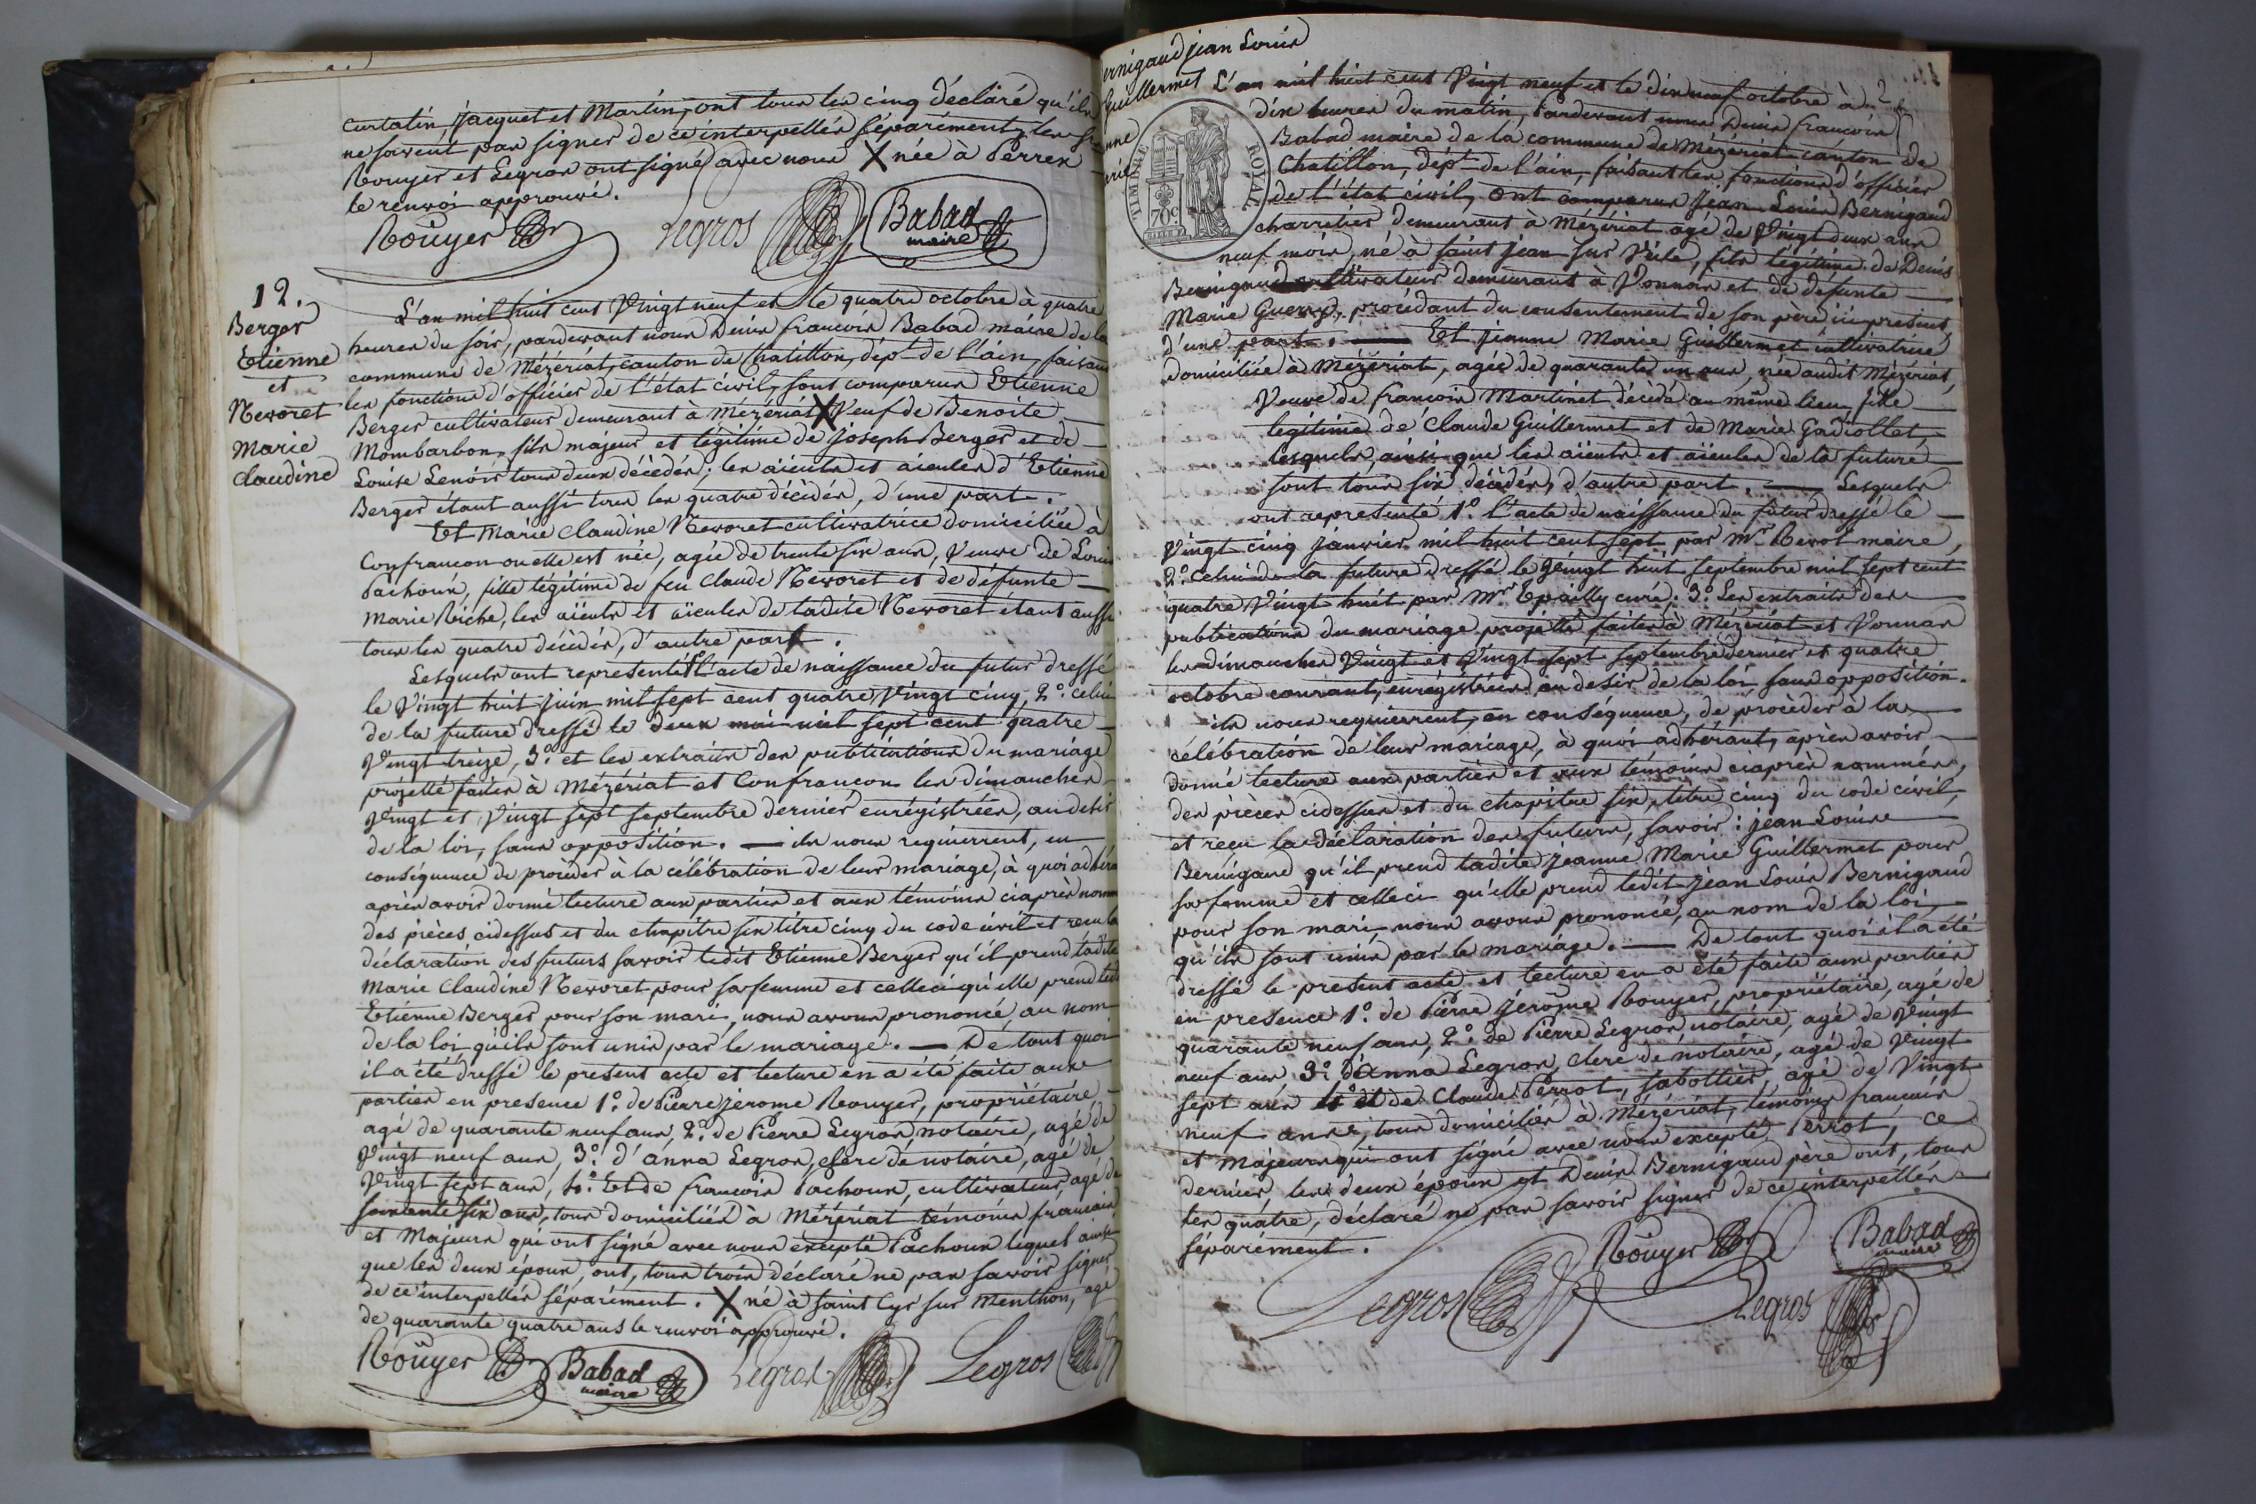 curtatin, jacquet et Martin, ont tous les cinq déclaré qu'ils
ne savent pas signer de ce interpellés séparément, les
Rouyer et Legros ont signé avec nous X née à Perrex
le renvoi approuvé.
Rouyer Legros Babad
maire
12.
Berger
Etienne
et
Nevoret
Marie
Claudine
L'an mil huit cent vingt neuf et le quatre octobre à quatre
heures du soir, pardevant nous Denis françois Babad maire de la
commune de Mézériat, canton de Chatillon, dépt de l'ain, faisant
les fonctions d'officier de l'état civil, sont comparus Etienne
Berger cultivateur demeurant à Mézériat X Veuf de Benoite
Mombarbon, fils majeur et légitime de joseph Berger et de
Louise Lenoir tous deux décédés; les aieuls et aieules d'Etienne
Berger étant aussi tous les quatre décédés, d'une part.
Et Marie Claudine Nevoret cultivatrice domiciliée à
Confrancon ou elle est née, agée de trente six ans, Veuve de Louis
Pachoux, fille légitime de feu Claude Nevoret et de défunte
Marie Riche, les aïeuls et aïeules de ladite Nevoret étant aussi
tous les quatre décédés, d'autre part.
Lesquels ont representé 1º l'acte de naissance du futur dressé
le Vingt huit juin mil sept cent quatre vingt cinq, 2º. celui
de la future dressé le deux mai mil sept cent quatre
Vingt treize, 3º. et les extraits des publications du mariage
projetté faites à Mézériat et Confrancon les dimanches
Vingt et Vingt sept septembre dernier enrégistrées, au desir
de la loi, sans opposition. — ils nous requierrent, en
conséquence de procéder à la célébration de leur mariage, à quoi adhéra
après avoir donné lecture aux parties et aux témoins ciaprès nomm
des pièces cidessus et du chapitre six titre cinq du code civil et recu la
déclaration des futurs savoir ledit Etienne Berger qu'il prend ladite
Marie Claudine Nevoret pour sa femme et celleci qu'elle prend ledi
Etiénne Berger pour son mari, nous avons prononcé, au nom
de la loi qu'ils sont unis par le mariage. — De tout quoi
il a été dressé le present acte et lecture en a été faite aux
parties en presence 1º. de Pierre Jerome Rouyer, propriétaire,
agé de quarante neuf ans, 2º. de Pierre Legros, notaire, agé de
Vingt neuf ans, 3º. d'anna Legros, clerc de notaire, agé de
Vingt sept ans, 4º. Et de francois Pachoux, cultivateur, agé de
soixante six ans, tous domiciliés à Mézériat témoins francais
et Majeurs qui ont signé avec nous excepté Pachoux lequel ainsi
que les deux époux, ont, tous trois déclaré ne pas savoir signer
de ce interpellés séparément. X né à Saint Cyr sur Menthon, agé
de quarante quatre ans le renvoi approuvé.
Rouyer Babad Legros Legros
maire
ernigaud jean Louis
Guillermet
L'an mil huit cent Vingt neuf et le dix neuf octobre à
dix heures du matin, Pardevant nous Denis françois
Babad maire de la commune de Mézériat canton de
Chatillon, dépt de l'ain, faisant les fonctions d'officier
de l'état civil, ont comparus Jean Louis Bernigaud
charretier demeurant à Mézériat agé de Vingt deux ans
neuf mois, né à saint jean sur Veile, fils légitime de Denis
TIMBRE ROYAL
70c
Bernigaud cultivateur demeurant à Vonnas et de defunte
Marie Guerry, procédant du consentement de son père ici present,
d'une part. — Et Jeanne Marie Guillermet cultivatrice
domiciliée à Mézériat, agée de quarante un ans, née audit Mézériat,
Veuve de françois Martinet décédé au même lieu, fille
légitime de Claude Guillermet et de Marie Gadiollet,
lesquels, ainsi que les aieuls et aieules de la future
sont tous six décédés, d'autre part. — Lesquels
ont représenté 1º. L'acte de naissance du futur dressé le
Vingt cinq janvier mil huit cent sept par Mr Revot maire,
2º. celui de la future dressé le Vingt huit septembre mil sept cent
quatre Vingt huit par Mr Epailly curé, 3º. Les extraits des
publications du mariage projetté faites à Mézériat et Vonnas
les dimanches Vingt et Vingt sept septembre dernier et quatre
octobre courant, enrégistrées au desir de la loi sans opposition.
ils nous requierrent, en conséquence, de procéder à la
célébration de leur mariage, à quoi adhérant, après avoir
donné lecture aux parties et aux témoins ciaprès nommés,
des pièces cidessus et du chapitre six, titre cinq du code civil,
et reçu la déclaration des futurs, savoir: jean Louis
Bernigaud qu'il prend ladite jeanne Marie Guillermet pour
sa femme et celleci qu'elle prend ledit jean Louis Bernigaud
pour son mari, nous avons prononcé, au nom de la loi,
qu'ils sont unis par le mariage. — De tout quoi il a été
dressé le present acte et lecture en a été faite aux parties
en presence 1º. de Pierre Jérome Rouyer, propriétaire, agé de
quarante neuf ans, 2º. de Pierre Legros notaire, agé de Vingt
neuf ans 3º. d'Anna Legros, clerc de notaire, agé de Vingt
sept ans 4º et de Claude Perrot, sabottier, agé de Vingt
neuf ans, tous domiciliés à Mézériat, témoins francais
et Majeurs qui ont signé avec nous excepté Perrot, ce
dernier, les deux époux et Denis Bernigaud père ont, tous
les quatre, déclaré ne pas savoir signer de ce interpellés
séparément.
Rouyer Babad
maire
Legros Legros